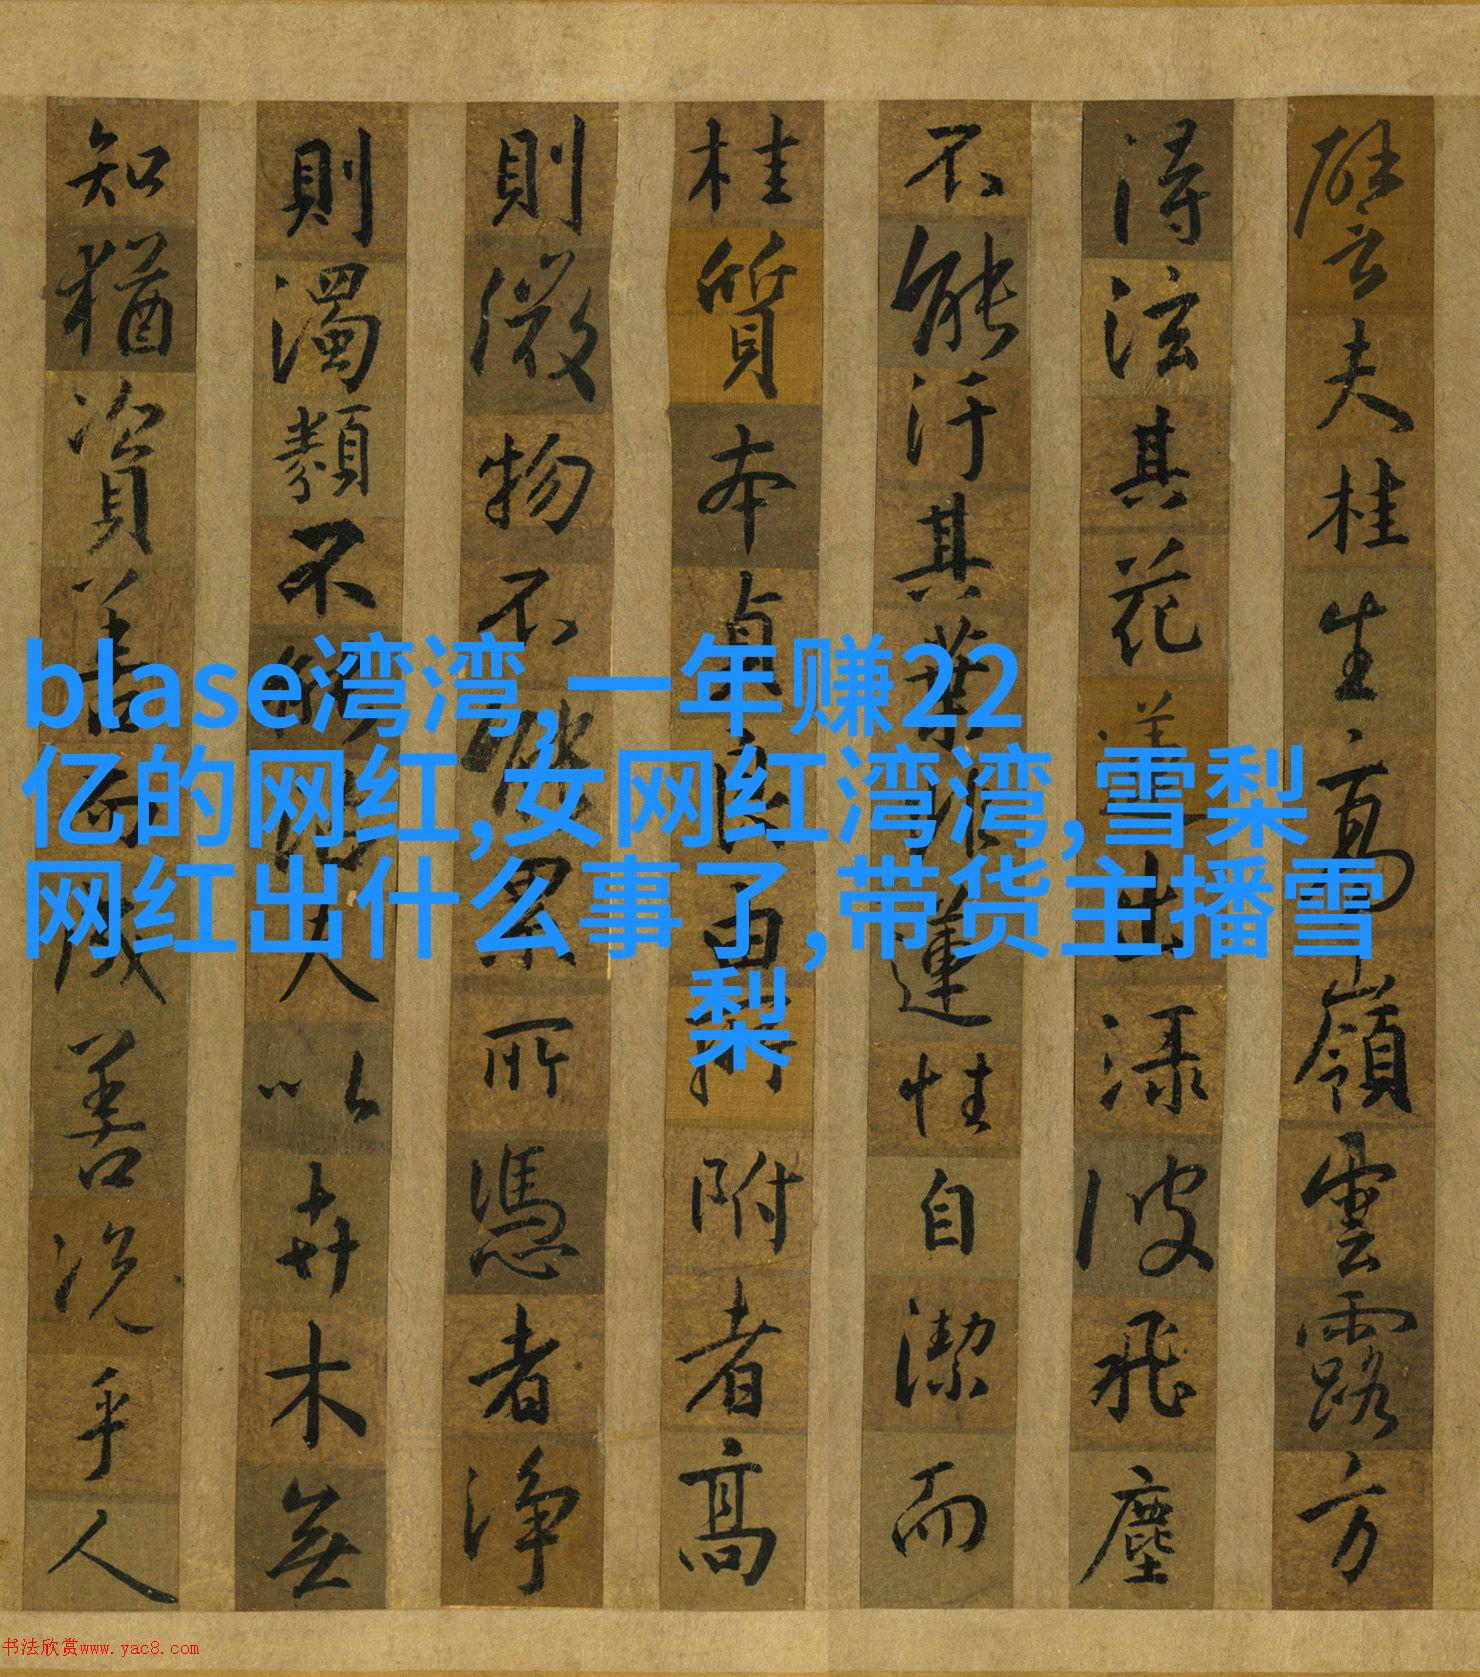 譬夫桂生高嶺雲露方
得泫其花蓮出淥波飛塵
不能汙其葉非蓮性自潔而
桂質本貞良由所附者高
則微物不能累所憑者淨
則濁類不能沾夫以卉木無
知猶資善而成善況乎人
blase湾湾,一年赚22
亿的网红,女网红湾湾,雪梨
网红出什么事了,带货主播雪
梨
书法欣赏www.yac8.com